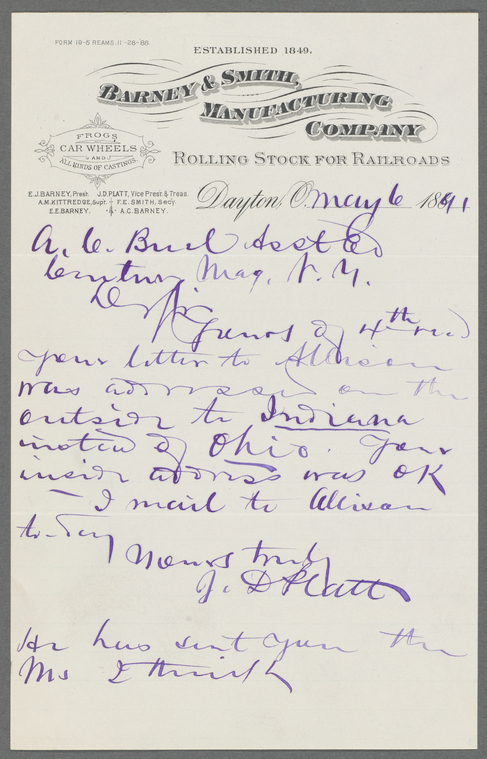 FORM 19-5 REAMS. 11-26-88.
ESTABLISHED 1849.
BARNEY & SMITH,
MANUFACTURING
COMPANY
FROGS,
CAR WHEELS
AND
ALL KINDS OF CASTINGS.
ROLLING STOCK FOR RAILROADS
E.J. BARNEY, Prest. J.D. PLATT, Vice Prest. & Treas.
A.M. KITTREDGE, Supt. F.E. SMITH, Secy.
E.E. BARNEY. A.C. BARNEY.
Dayton, O. May 6 1891
A. C. Buel Asst Ed
Century Mag, N. Y.
D Sir
Yours of 4th recd
your letter to Allison
was addressed on the
outside to Indiana
instead of Ohio. Your
inside address was OK
— I mail to Allison
to-day
Yours truly
J. D Platt
He has sent you the
Ms I think